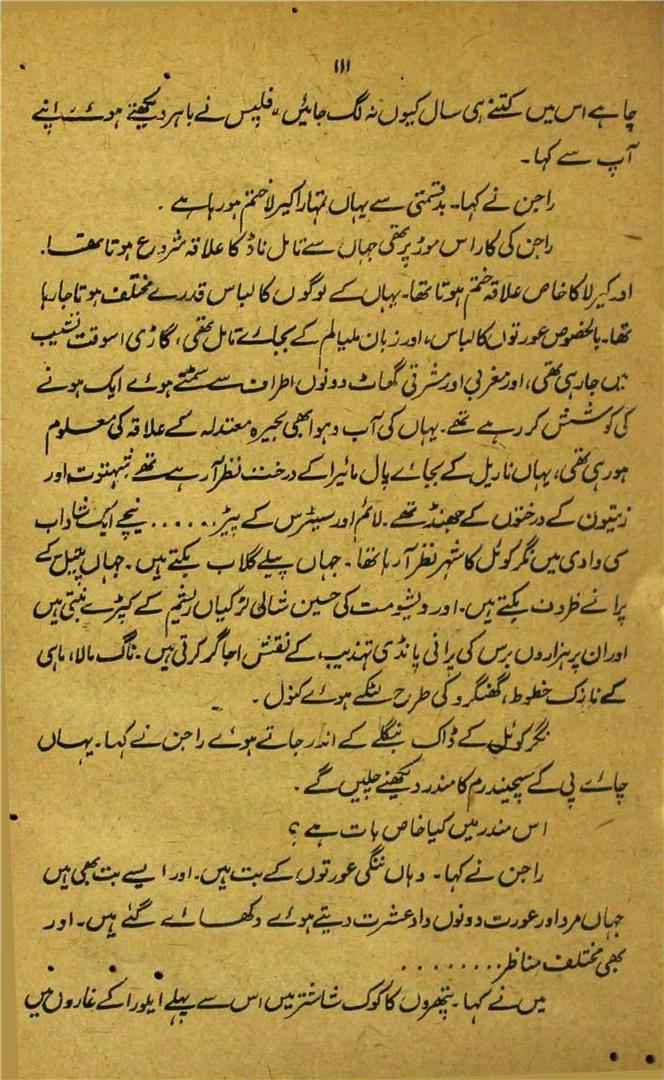 ۱۱۱
چاہے اس میں کتنے ہی سال کیوں نہ لگ جائیں “ فلپس نے باہر دیکھتے ہوئے اپنے
آپ سے کہا۔
راجن نے کہا۔ بدقسمتی سے یہاں تمہارا کیرلا ختم ہو رہا ہے ۔
راجن کی کار اس موڑ پر تھی جہاں سے تامل ناڈ کا علاقہ شروع ہوتا تھا۔
اور کیرلا کا خاص علاقہ ختم ہوتا تھا۔ یہاں کے لوگوں کا لباس قدرے مختلف ہوتا جا رہا
تھا۔ بالخصوص عورتوں کا لباس، اور زبان ملیالم کے بجائے تامل تھی، گاڑی اسوقت نشیب
میں جا رہی تھی، اور مغربی اور مشرقی گھاٹ دونوں اطراف سے سمٹتے ہوئے ایک ہونے
کی کوشش کر رہے تھے۔ یہاں کی آب و ہوا بھی بحیرہ معتدلہ کے علاقہ کی معلوم
ہو رہی تھی، یہاں ناریل کے بجائے پال مائیرا کے درخت نظر آ رہے تھے شہتوت اور
زیتون کے درختوں کے جھنڈ تھے۔ لائم اور سیٹرس کے پیڑ...... نیچے ایک شاداب
سی وادی میں نگر کوئل کا شہر نظر آ رہا تھا۔ جہاں پیلے گلاب بکتے ہیں۔ جہاں پیتل کے
پرانے ظروف بکتے ہیں۔ اور ویشومت کی حسین شالی لڑکیاں ریشم کے کپڑے بنتی ہیں
اور ان پر ہزاروں برس کی پرانی پانڈی تہذیب، کے نقش اجاگر کرتی ہیں۔ ناگ مالا، ماہی
کے نازک خطوط، گھنگرو کی طرح لٹکے ہوئے کنول ۔
نگر کوئل کے ڈاک بنگلے کے اندر جاتے ہوئے راجن نے کہا۔ یہاں
چائے پی کے سچیندرم کا مندر دیکھنے چلیں گے ۔
اس مندر میں کیا خاص بات ہے ؟
راجن نے کہا۔ وہاں ننگی عورتوں کے بت ہیں۔ اور ایسے بت بھی ہیں
جہاں مرد اور عورت دونوں داد عشرت دیتے ہوئے دکھائے گئے ہیں۔ اور
بھی مختلف مناظر........
میں نے کہا۔ پتھروں کا کوک شاشتر میں اس سے پہلے ایلورا کے غاروں میں